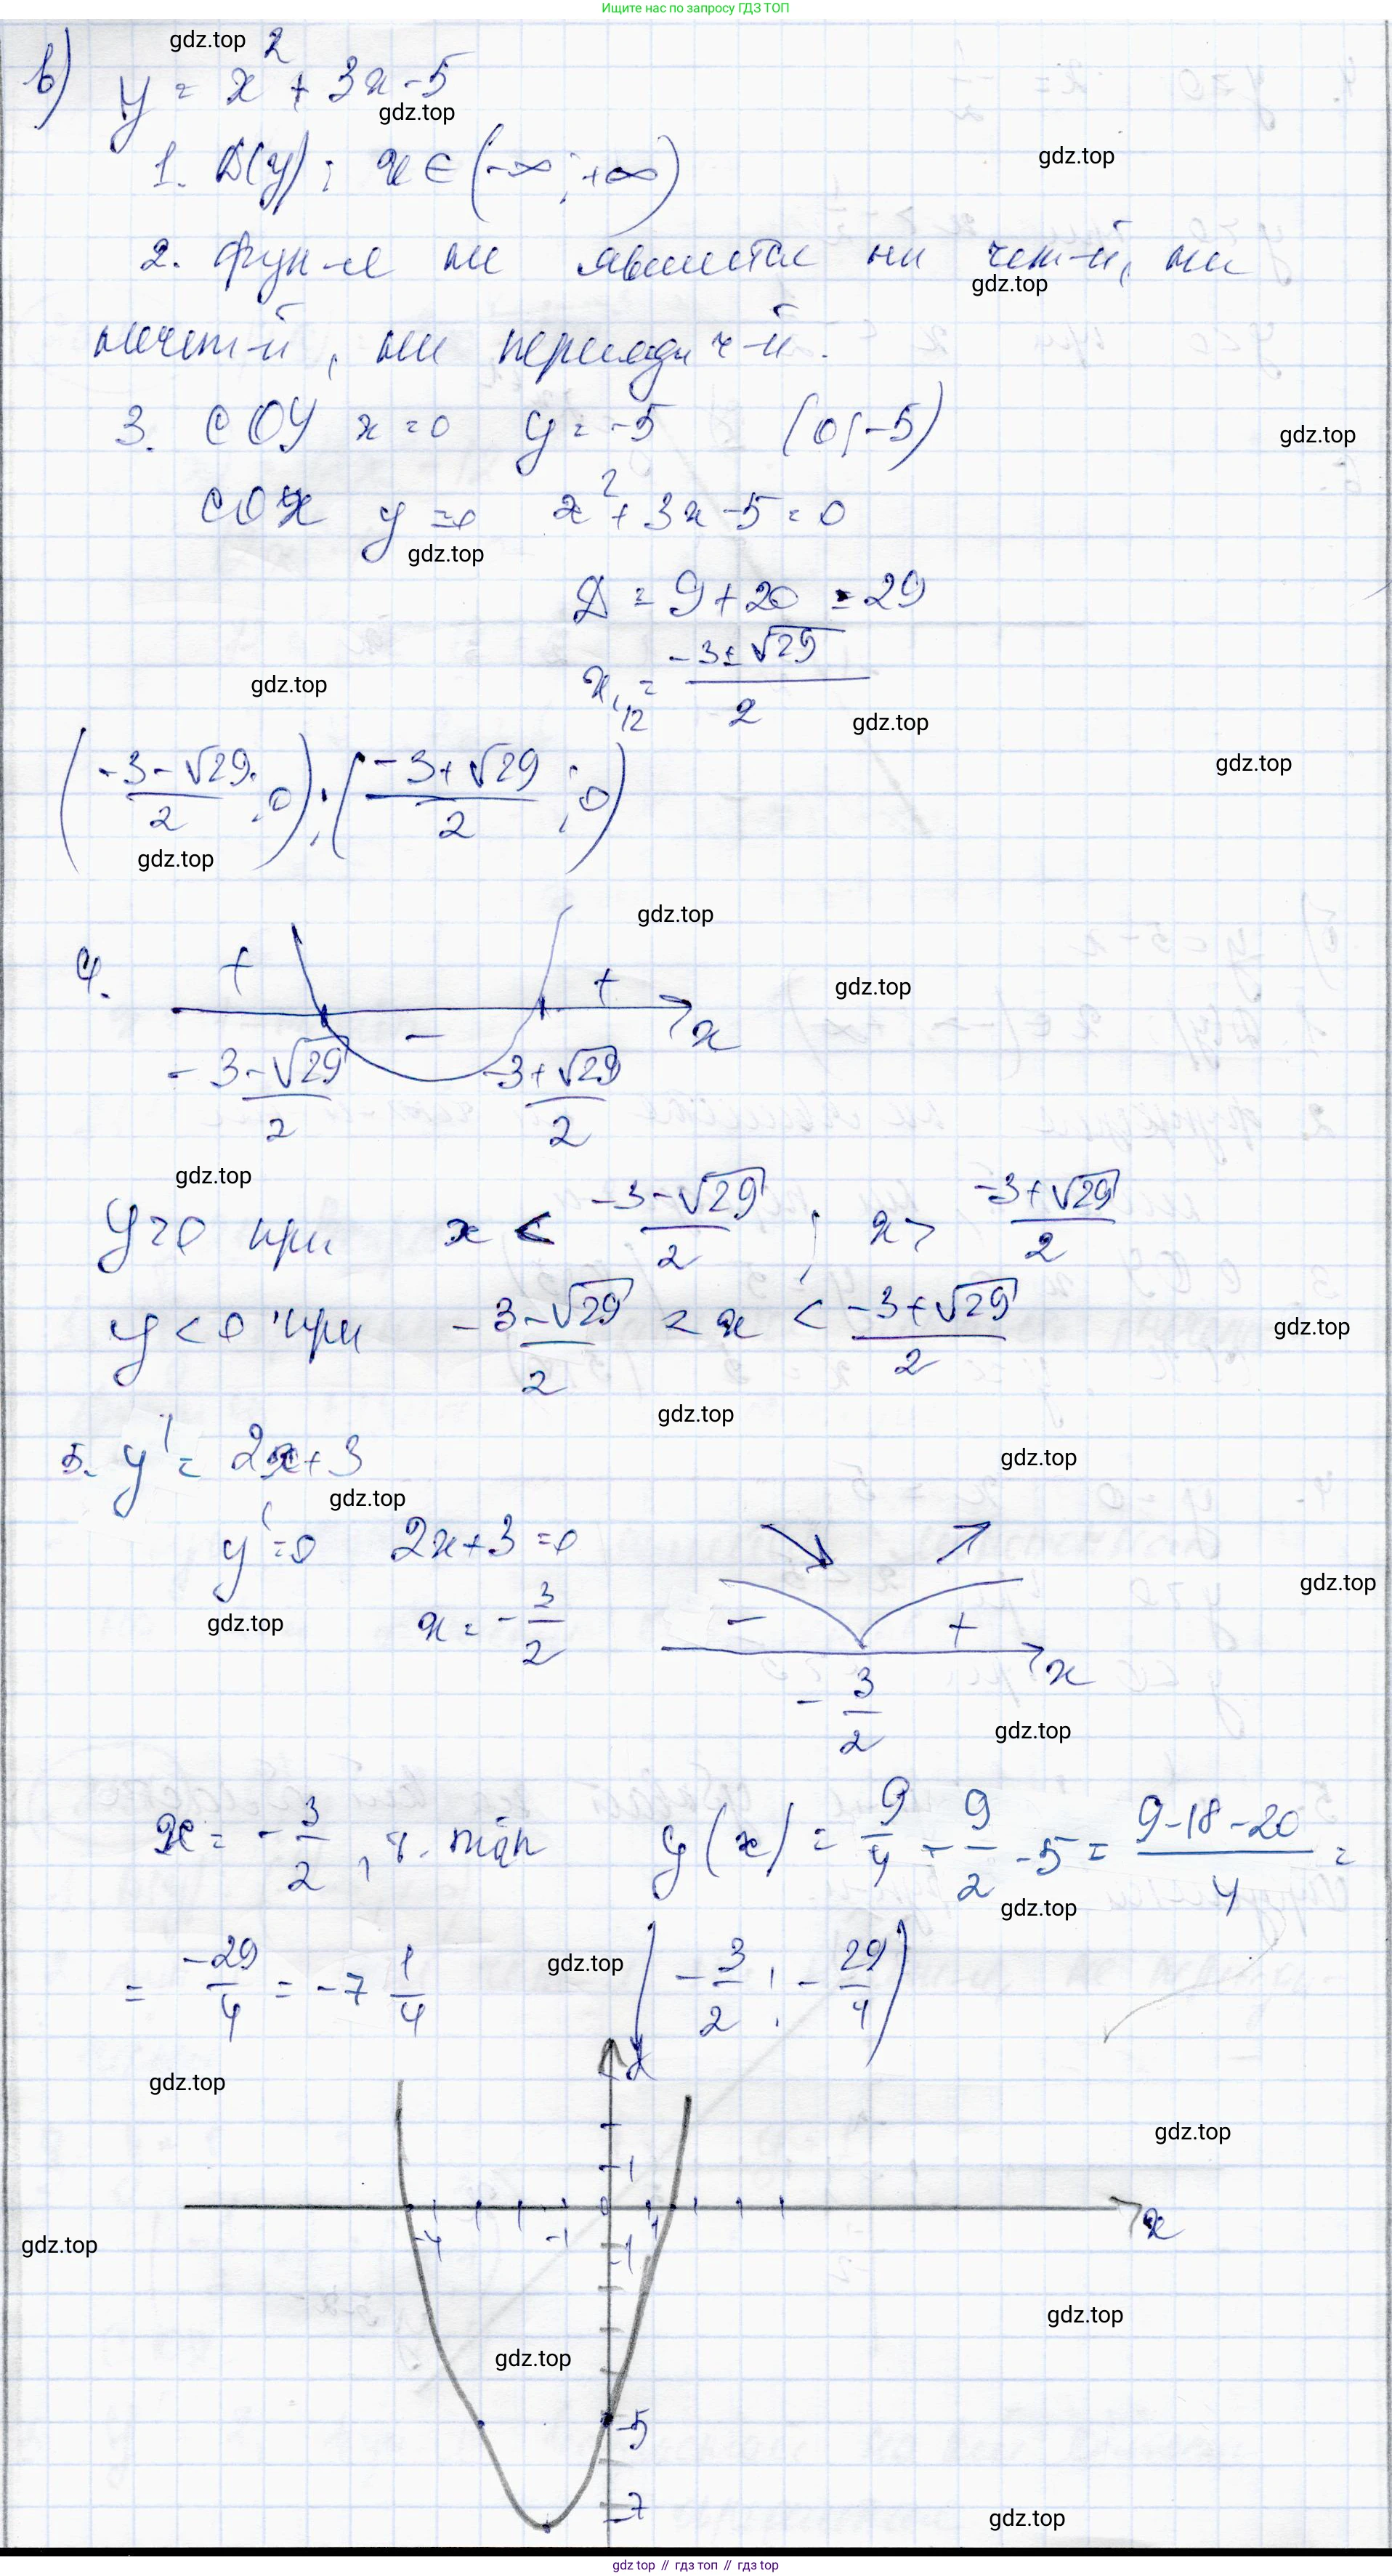 Ищите нас по запросу ГДЗ ТОП
gdz.top
в) y = x² + 3x - 5
gdz.top
1. D(y): x ∈ (-∞; +∞)
gdz.top
2. Функ-я не является ни чет-й, ни
gdz.top
нечет-й, ни периодич-й.
3. С ОУ x = 0 y = -5 (0; -5)
gdz.top
С ОХ y = 0 x² + 3x - 5 = 0
gdz.top
D = 9 + 20 = 29
x₁,₂ = (-3 ± √29)/2
gdz.top
gdz.top
gdz.top
((-3 - √29)/2; 0); ((-3 + √29)/2; 0)
gdz.top
gdz.top
4. + - + x
gdz.top
(-3 - √29)/2 (-3 + √29)/2
gdz.top
y > 0 при x < (-3 - √29)/2 ; x > (-3 + √29)/2
y < 0 при (-3 - √29)/2 < x < (-3 + √29)/2
gdz.top
gdz.top
5. y' = 2x + 3
gdz.top
gdz.top
y' = 0 2x + 3 = 0
gdz.top
x = -3/2
gdz.top
- + x
-3/2
gdz.top
x = -3/2, т. min y(x) = 9/4 - 9/2 - 5 = (9 - 18 - 20)/4 =
gdz.top
= -29/4 = -7 1/4 (-3/2; -29/4)
gdz.top
y
gdz.top
gdz.top
1
-4 -1 0 1 x
-1
gdz.top
gdz.top
gdz.top
-5
-7
gdz.top
gdz top // гдз топ // gdz top